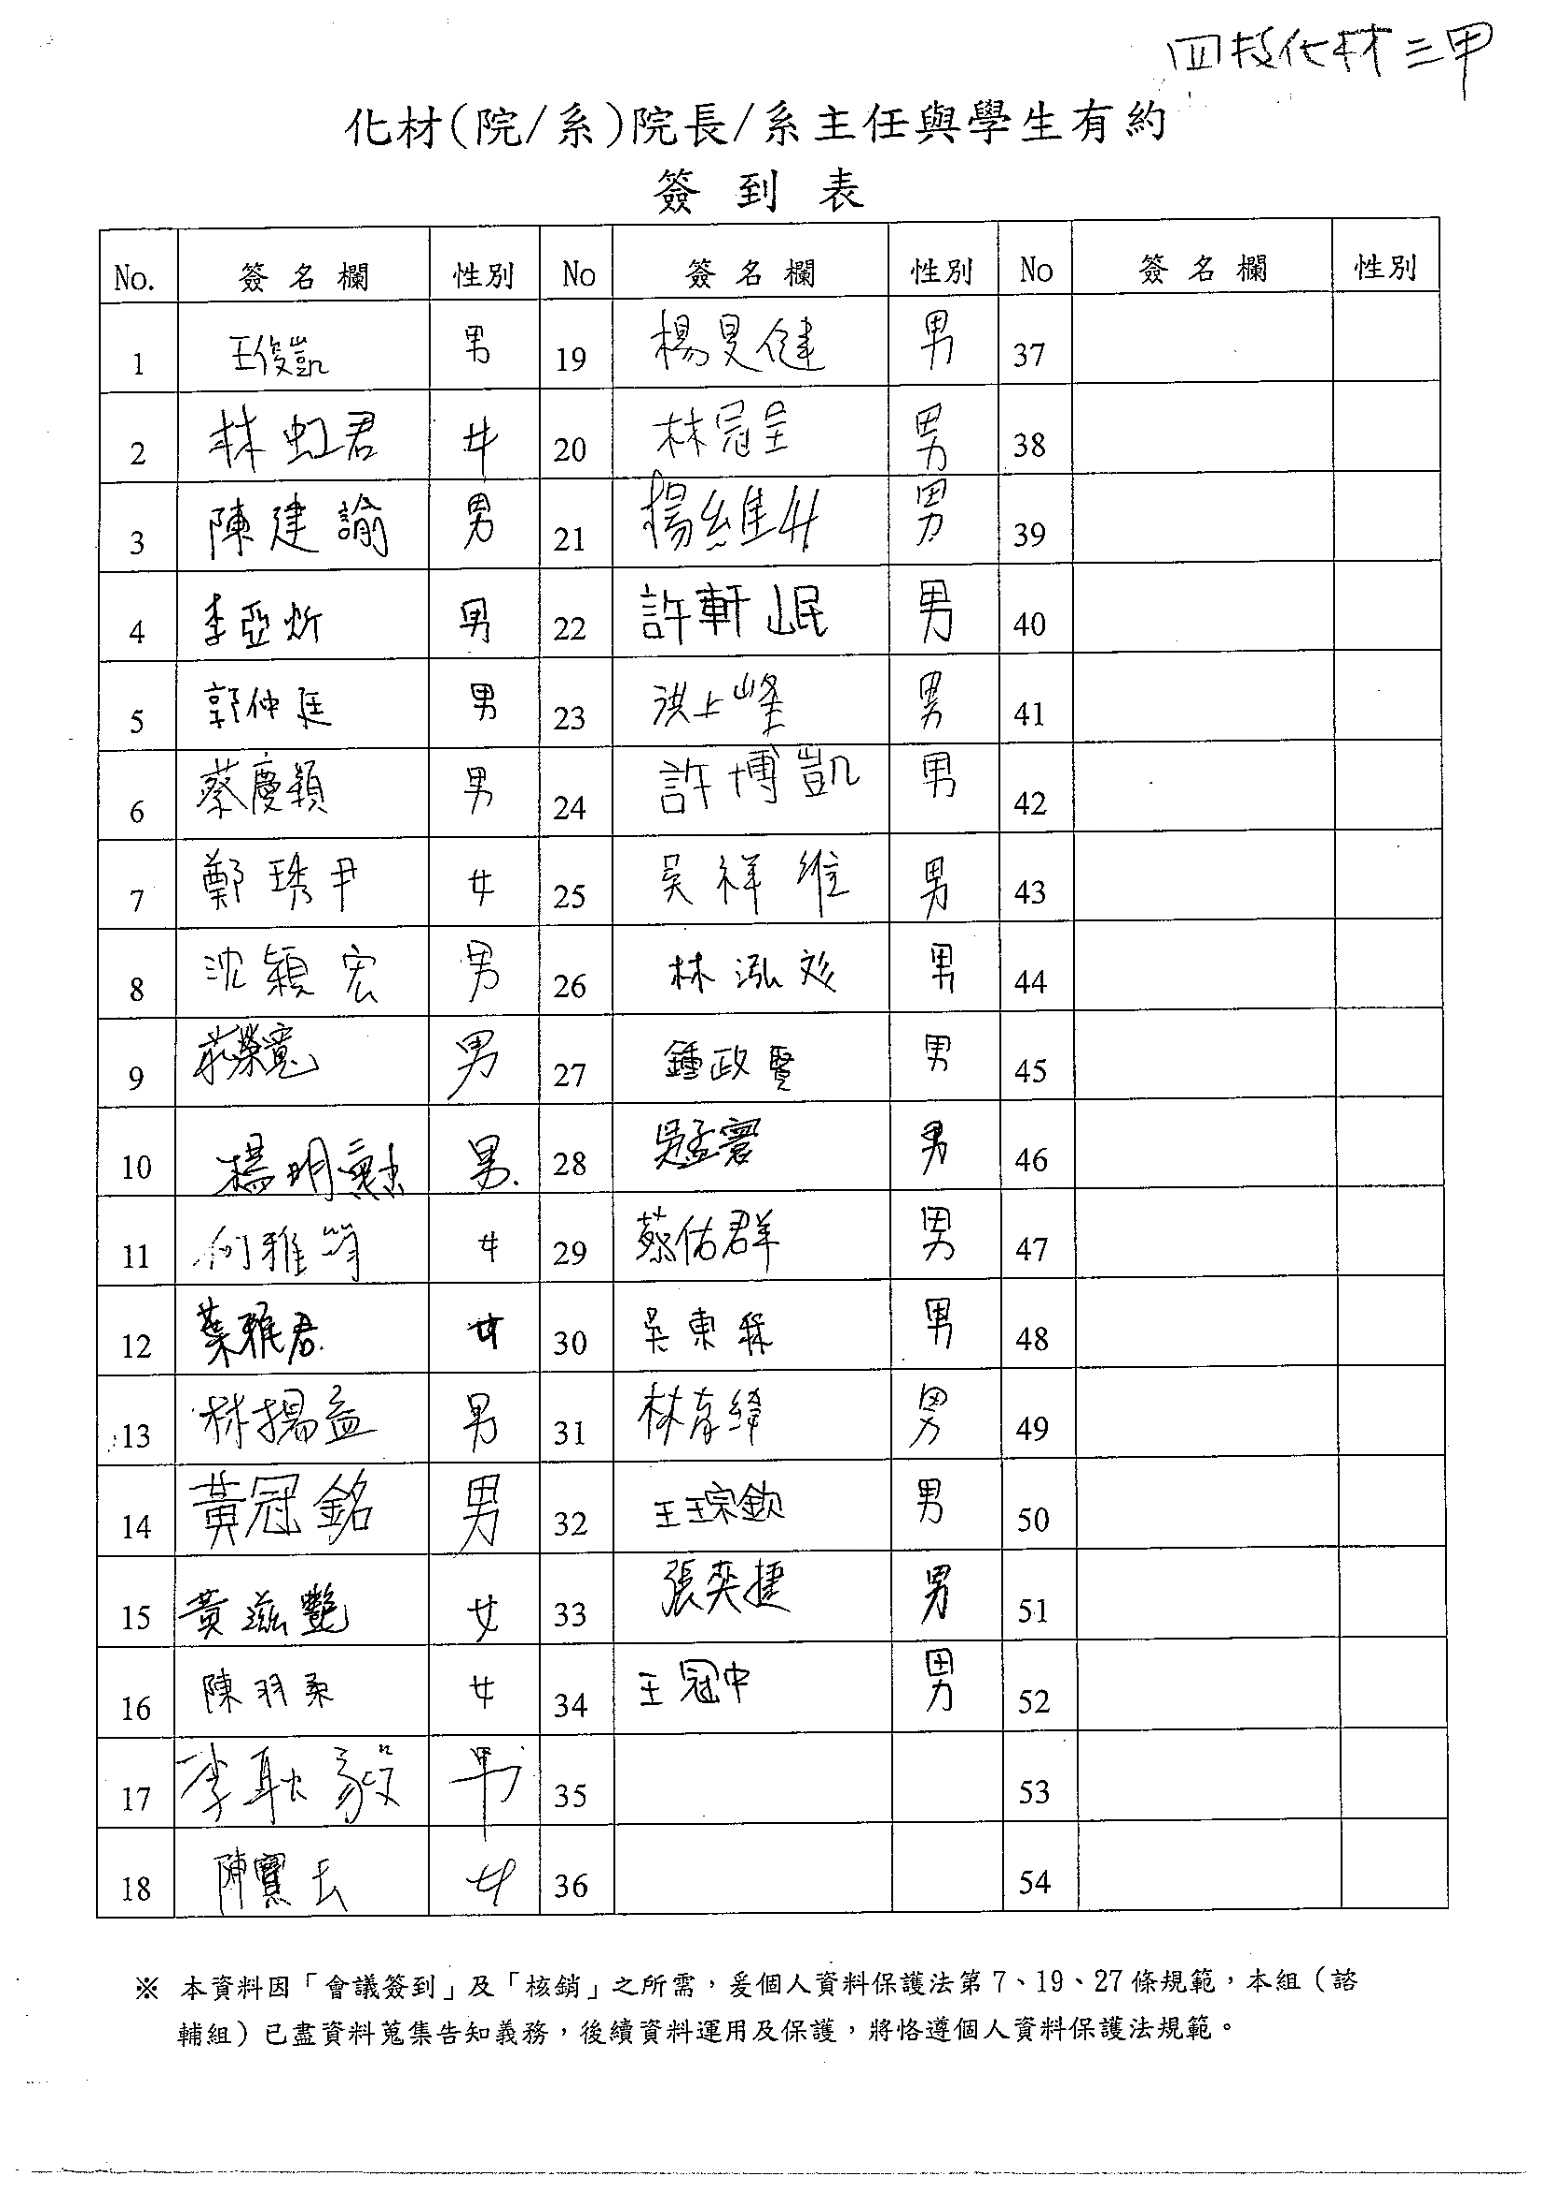 四技化材三甲
化材(院/系)院長/系主任與學生有約
簽到表
No. 簽名欄 性別 No 簽名欄 性別 No 簽名欄 性別
1 王俊凱 男 19 楊旻健 男 37
2 林虹君 女 20 林冠呈 男 38
3 陳建諭 男 21 楊維升 男 39
4 李亞炘 男 22 許軒岷 男 40
5 郭仲廷 男 23 洪上峰 男 41
6 蔡慶穎 男 24 許博凱 男 42
7 鄭琇尹 女 25 吳祥維 男 43
8 沈穎宏 男 26 林泓 男 44
9 莊榮寬 男 27 鍾政賢 男 45
10 楊明勲 男 28 吳孟寰 男 46
11 何雅筠 女 29 蔡佑群 男 47
12 葉雅君 女 30 吳東霖 男 48
13 林揚益 男 31 林育緯 男 49
14 黃冠銘 男 32 王琮欽 男 50
15 黃滋艷 女 33 張奕捷 男 51
16 陳羽柔 女 34 王冠中 男 52
17 李耿毅 男 35 53
18 陳寶 女 36 54
※ 本資料因「會議簽到」及「核銷」之所需，爰個人資料保護法第 7、19、27 條規範，本組（諮
輔組）已盡資料蒐集告知義務，後續資料運用及保護，將恪遵個人資料保護法規範。